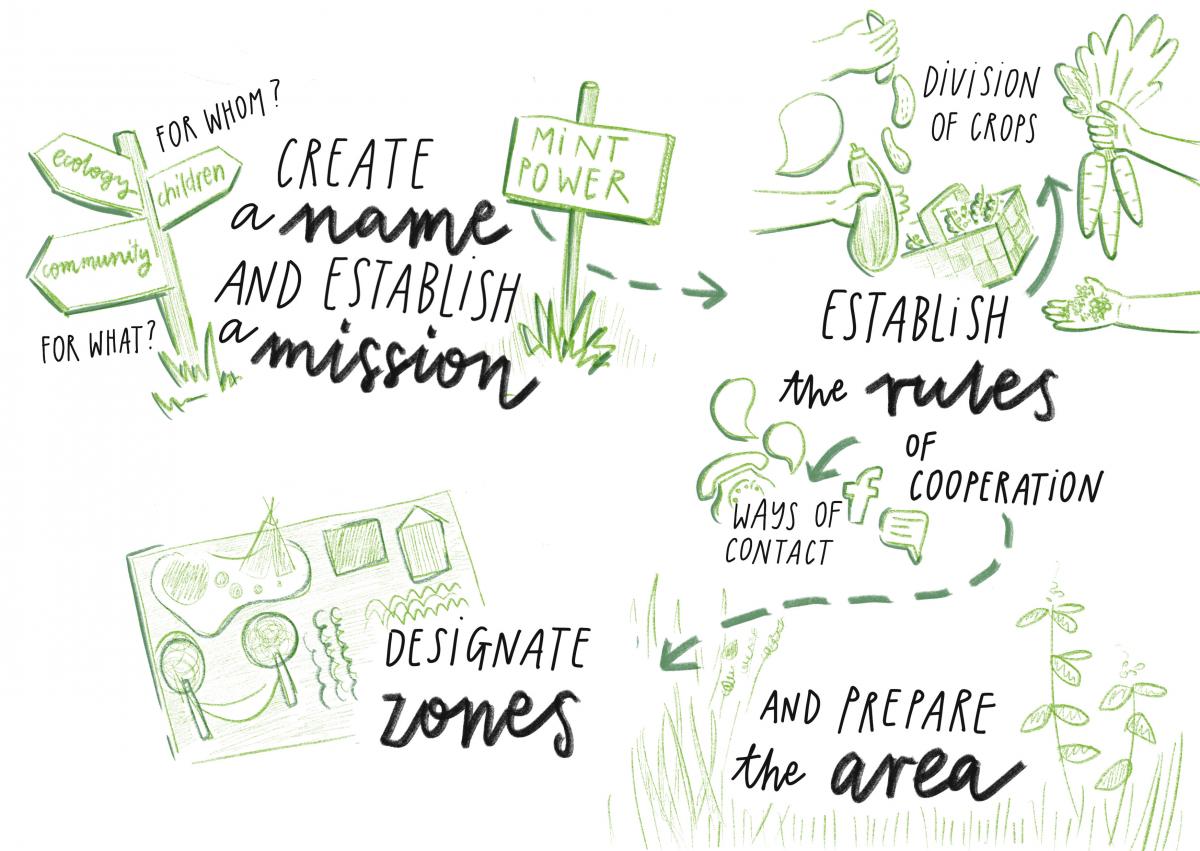 FOR WHOM?
ecology
children
community
FOR WHAT?
CREATE
a name
AND ESTABLISH
a mission
MINT
POWER
DIVISION
OF CROPS
ESTABLISH
the rules
OF
COOPERATION
WAYS OF
CONTACT
f
DESIGNATE
zones
AND PREPARE
the area